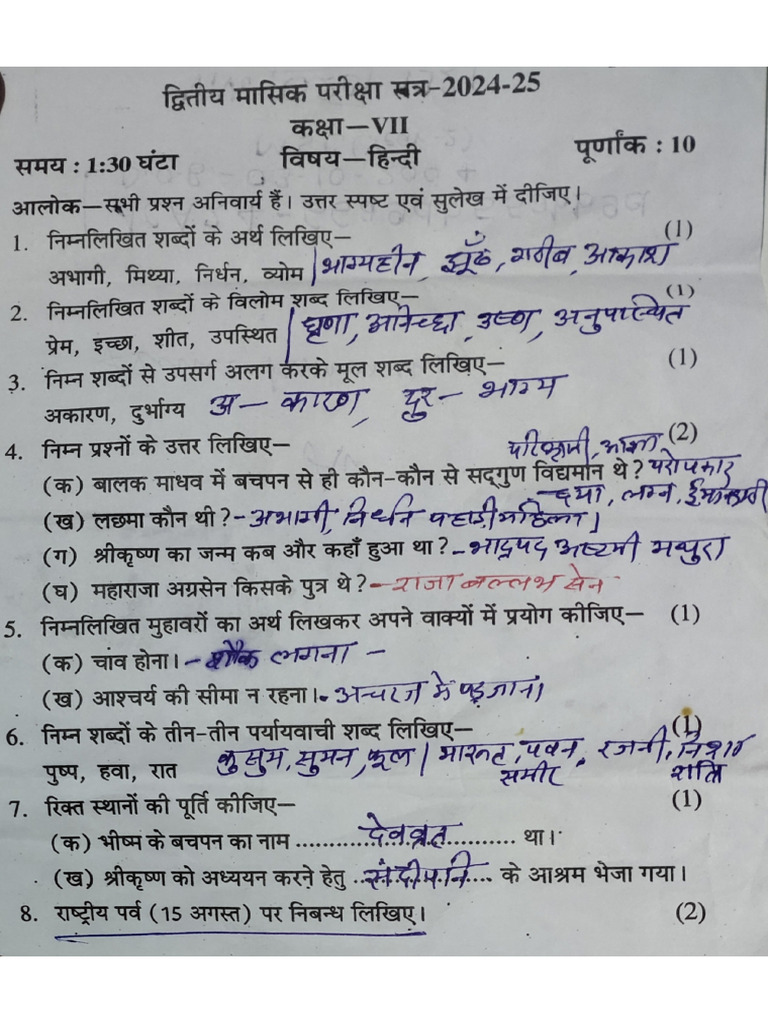 द्वितीय मासिक परीक्षा सत्र-2024-25
कक्षा—VII
समय : 1:30 घंटा विषय—हिन्दी पूर्णांक : 10
आलोक—सभी प्रश्न अनिवार्य हैं। उत्तर स्पष्ट एवं सुलेख में दीजिए।
1. निम्नलिखित शब्दों के अर्थ लिखिए— (1)
अभागी, मिथ्या, निर्धन, व्योम | भाग्यहीन, झूँठ, गरीब, आकाश
2. निम्नलिखित शब्दों के विलोम शब्द लिखिए— (1)
प्रेम, इच्छा, शीत, उपस्थित | घृणा, अनिच्छा, उष्ण, अनुपास्थित
3. निम्न शब्दों से उपसर्ग अलग करके मूल शब्द लिखिए— (1)
अकारण, दुर्भाग्य अ — कारण, दुर — भाग्य
4. निम्न प्रश्नों के उत्तर लिखिए— (2)
(क) बालक माधव में बचपन से ही कौन-कौन से सद्गुण विद्यमान थे? परोपकार
दया, लग्न, ईमानदारी
(ख) लछमा कौन थी? - अभागी, निर्धन पहाडी महिला।
(ग) श्रीकृष्ण का जन्म कब और कहाँ हुआ था? - भाद्रपद अष्टमी मथुरा
(घ) महाराजा अग्रसेन किसके पुत्र थे? - राजा बल्लभ सेन
5. निम्नलिखित मुहावरों का अर्थ लिखकर अपने वाक्यों में प्रयोग कीजिए— (1)
(क) चांव होना। - शौक लगना -
(ख) आश्चर्य की सीमा न रहना। - अचरज में पड़ जाना।
6. निम्न शब्दों के तीन-तीन पर्यायवाची शब्द लिखिए— (1)
पुष्प, हवा, रात कुसुम, सुमन, फूल | मारूत, पवन, रजनी, निशा
समीर रात्रि
7. रिक्त स्थानों की पूर्ति कीजिए— (1)
(क) भीष्म के बचपन का नाम ........ देवव्रत ........ था।
(ख) श्रीकृष्ण को अध्ययन करने हेतु ... संदीपनि .... के आश्रम भेजा गया।
8. राष्ट्रीय पर्व (15 अगस्त) पर निबन्ध लिखिए। (2)